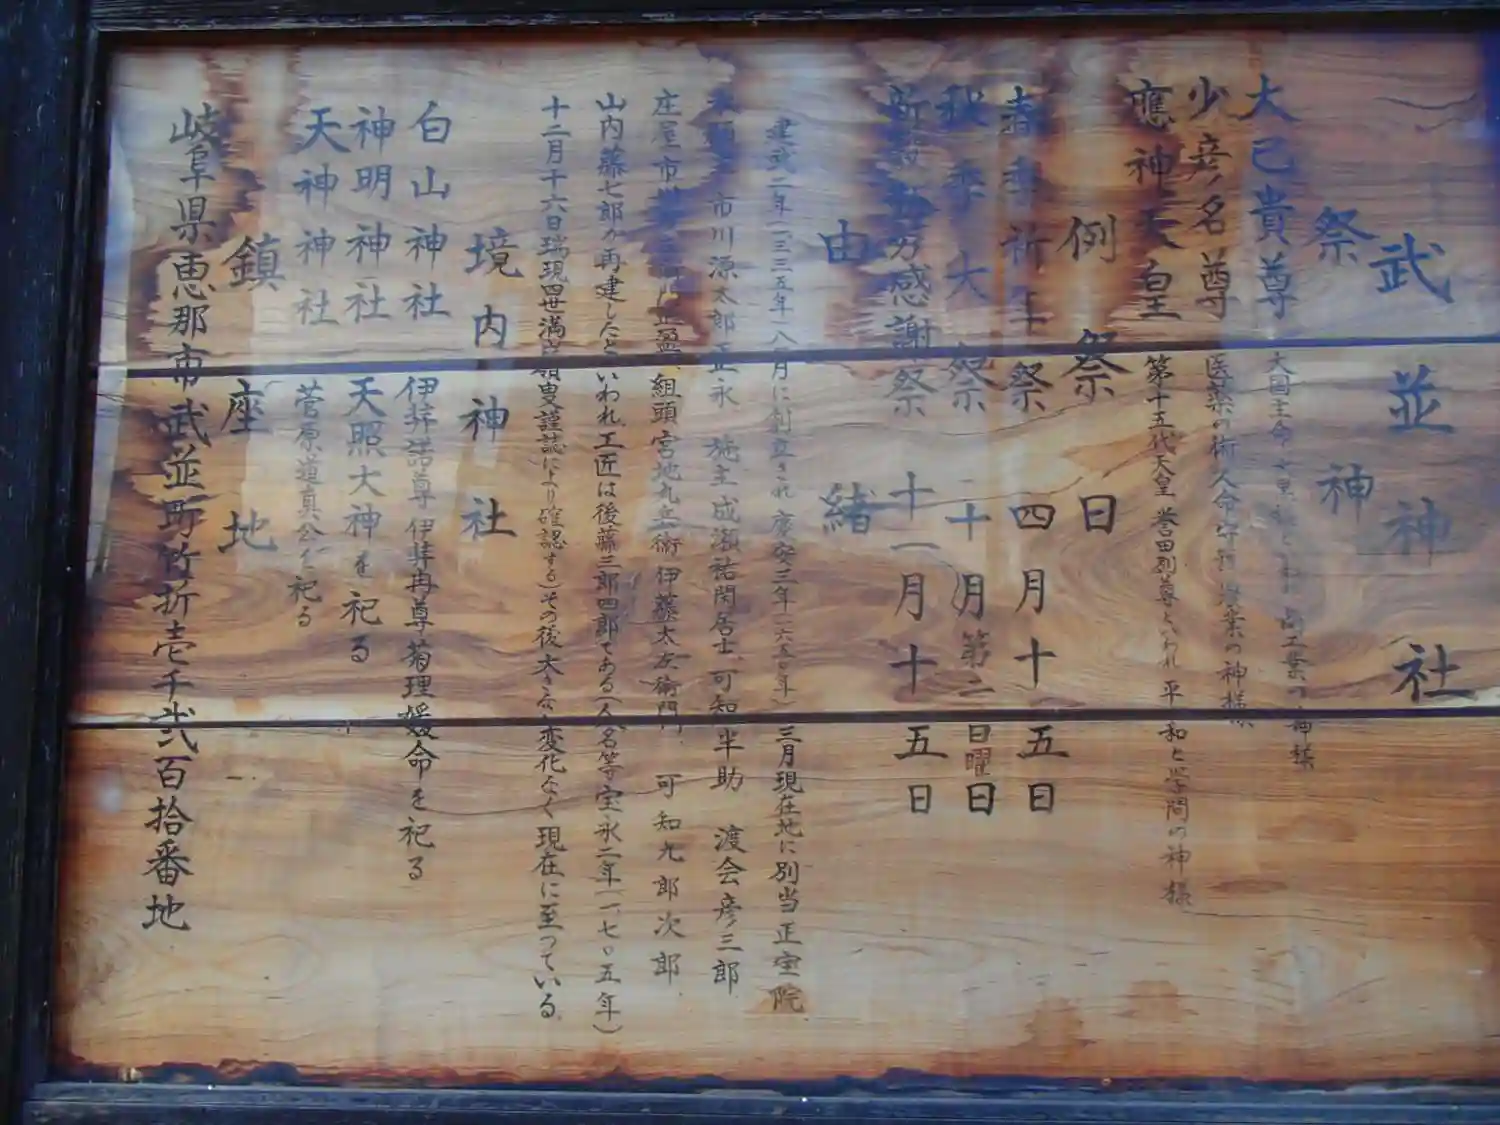 武並神社
祭神
大己貴尊 大国主命
少彦名尊 医薬の術人命守護 農業の神様
應神天皇 第十五代天皇 誉田別尊といわれ 平和と学問の神様
例祭日
春季祈年祭 四月十五日
秋季大祭 十月第二日曜日
感謝祭 十一月十五日
由緒
建武二年(一三三五年)八月に創立され慶安三年(一六五〇年)三月現在地に別当正宝院
市川源太郎正永 施主成瀬祐閑居士、可知半助 渡会彦三郎
庄屋市 組頭宮地 伊藤太左衛門 可知九郎次郎
山内藤七郎が再建したといわれ、工匠は後藤三郎四郎である(人名等宝永二年(一七〇五年)
十二月十六日瑞現四世満 叟謹誌により確認する)その後大きな変化なく現在に至っている。
境内神社
白山神社 伊弉諾尊伊弉冉尊菊理媛命を祀る
神明神社 天照大神を祀る
天神神社 菅原道真公を祀る
鎮座地
岐阜県恵那市武並町竹折壱千弐百拾番地